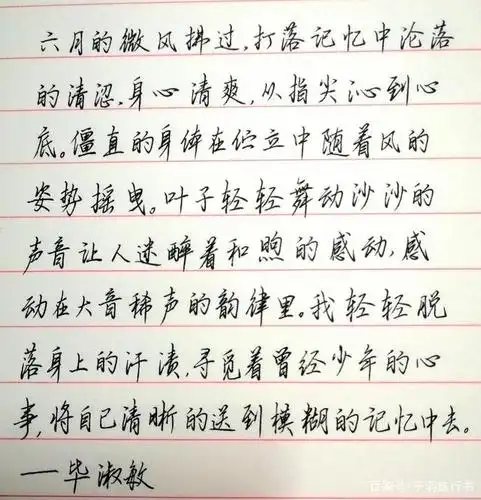 六月的微风拂过,打落记忆中沦落
的清涩,身心清爽,从指尖沁到心
底。僵直的身体在伫立中随着风的
姿势摇曳。叶子轻轻舞动沙沙的
声音让人迷醉着和煦的感动,感
动在大音稀声的韵律里。我轻轻脱
落身上的汗渍,寻觅着曾经少年的心
事,将自己清晰的送到模糊的记忆中去。
——毕淑敏